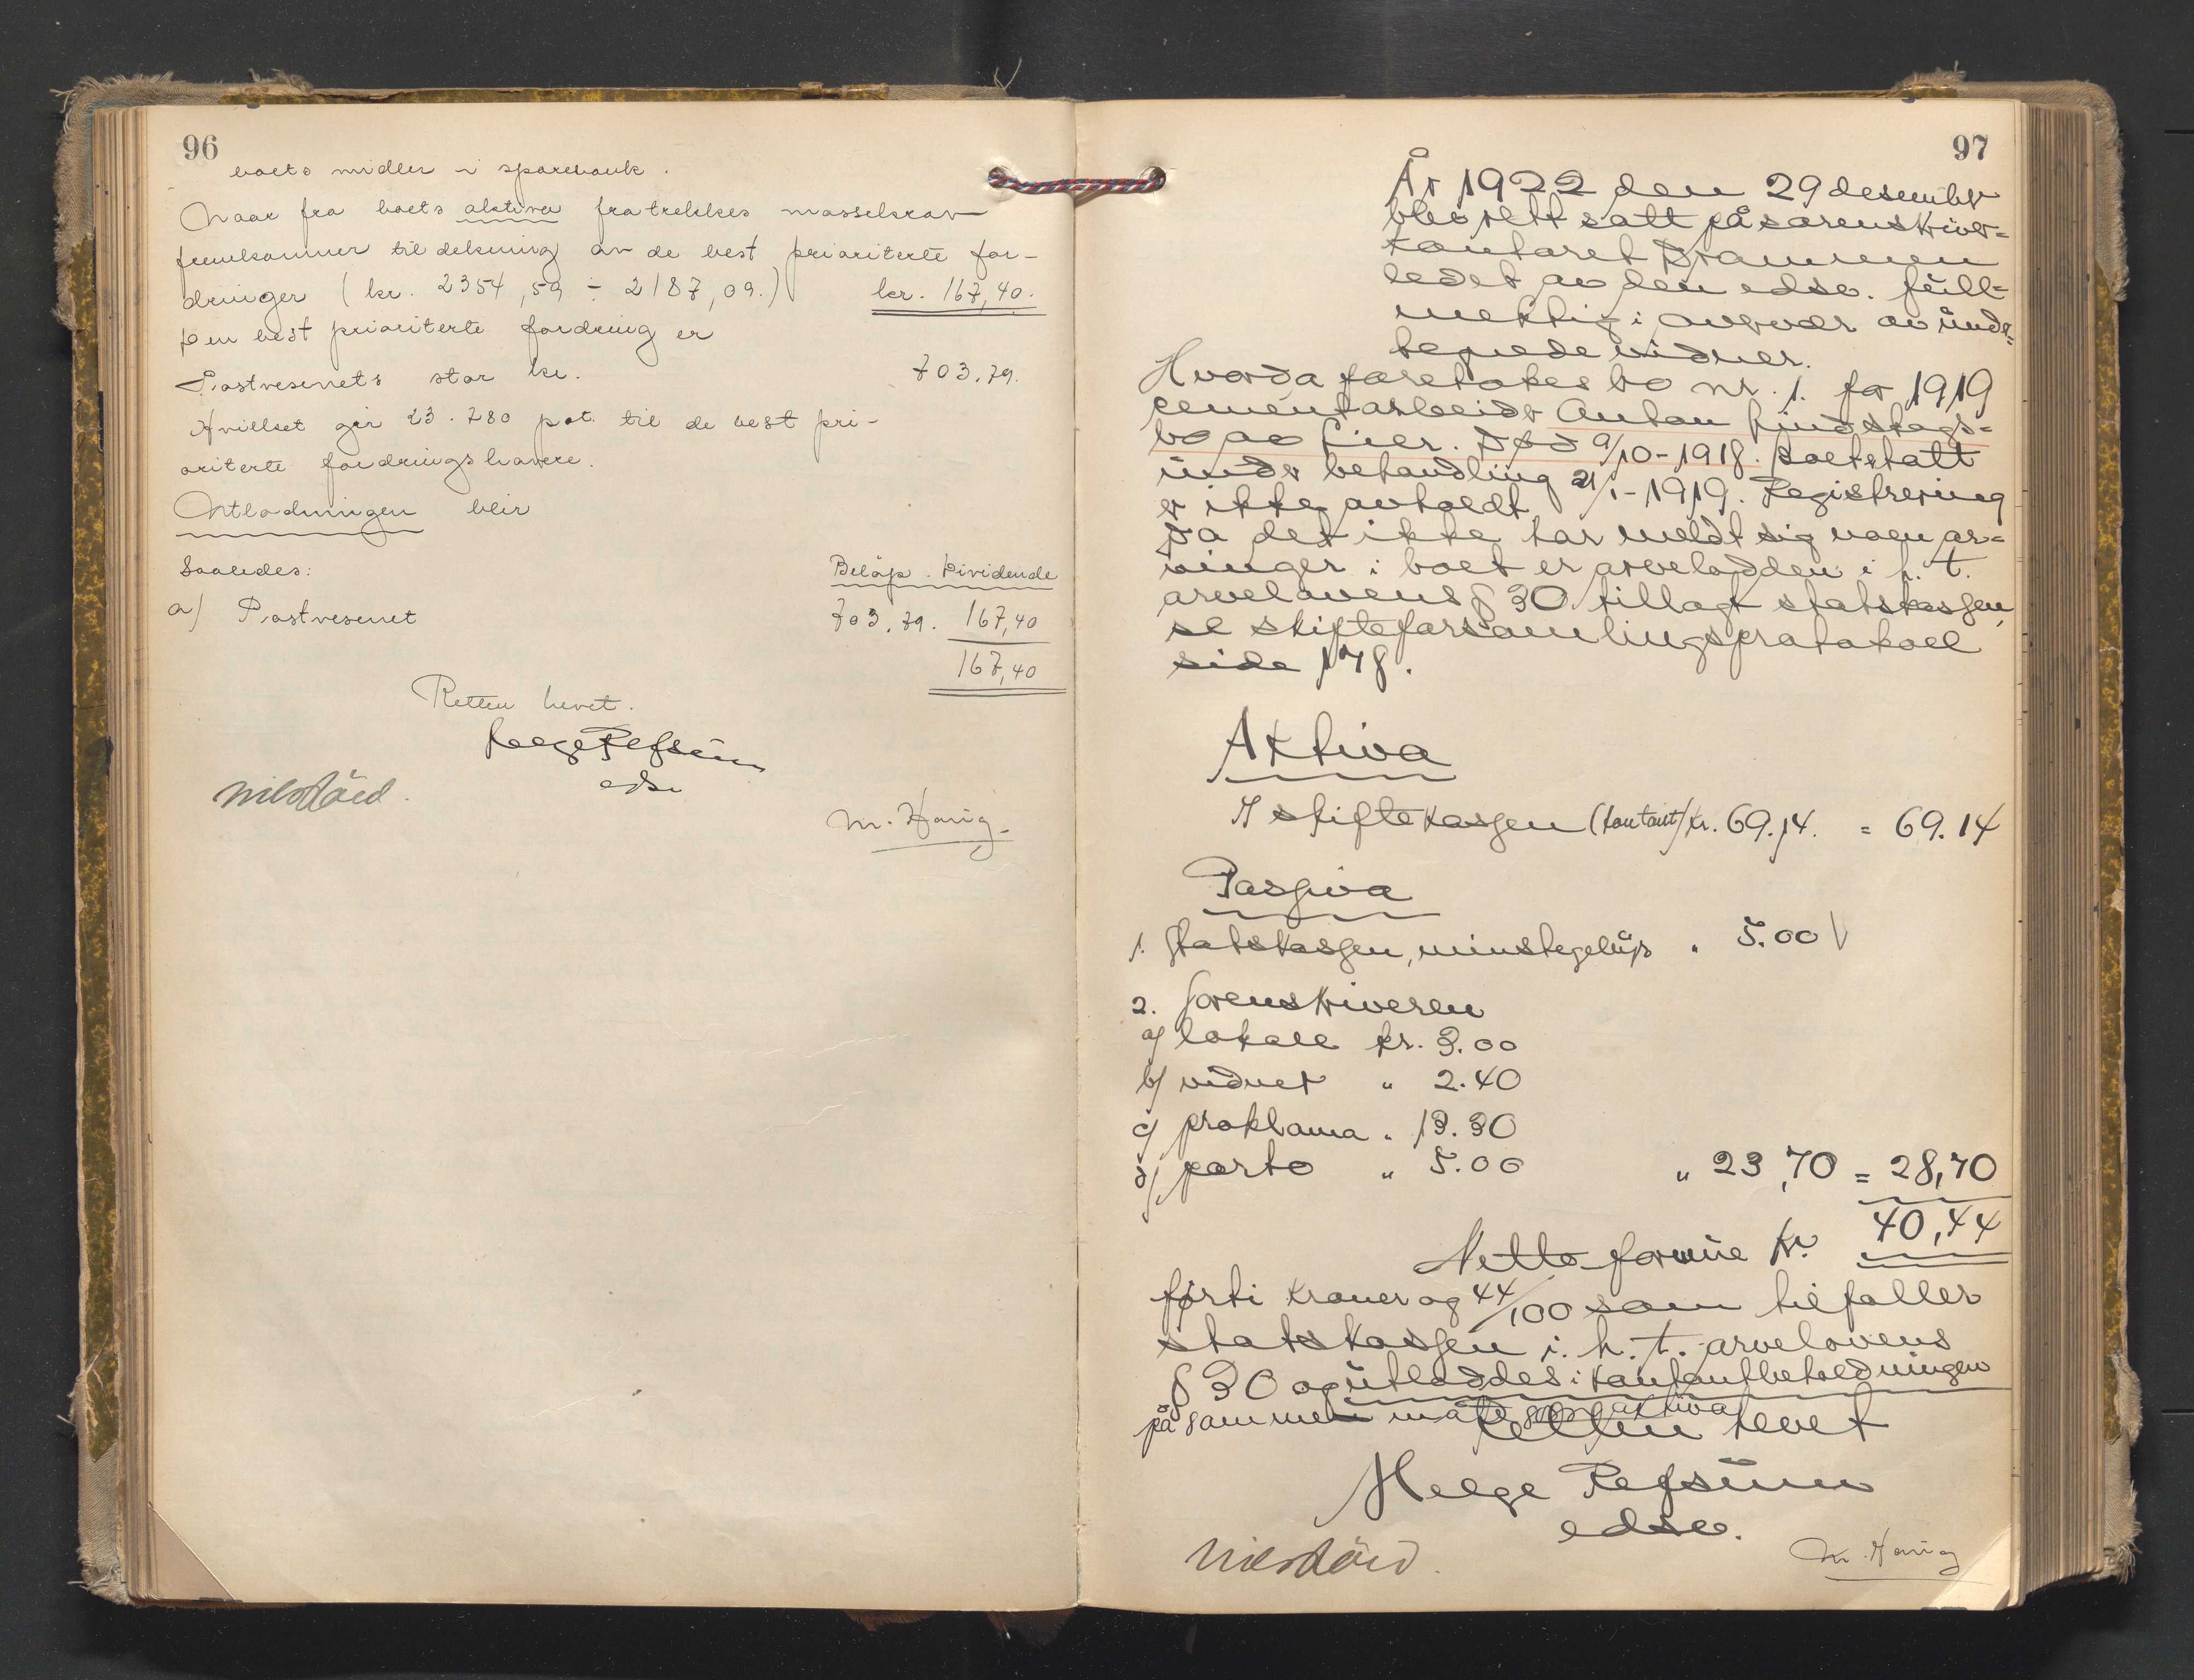 96
boets midler i sparebank.
Naar fra boets aktiva fratrekkes massekrav
fremkommer til dekning av de best prioriterte for-
dringer (kr. 2354,59 ÷ 2187,09.) kr. 167,40.
Den best prioriterte fordring er
Postvesenets stor kr. 703.79.
Hvilket gir 23.780 pct. til de best pri-
oriterte fordringshavere.
Utlodningen blir
Saaledes: Beløp. Dividende
a/ Postvesenet 703.79. 167,40
167,40
Retten hevet.
Helge Refsum
edsv
Nils
M. Hanig
97
År 1922 den 29 desember
blev rett satt på sorenskriver=
kontoret Drammen
ledet av den edsv. full=
mektig i overvær av under=
tegnede vidner.
Hvorda foretokes bo nr. 1. for 1919
cementarbeider Anton Lindskogs=
bo av Lier. Død 9/10-1918. Boet tatt
under behandling 21/1-1919. Registrering
er ikke avholdt
Da det ikke har meldt sig noen ar=
vinger i boet er arvelodden i h. t.
arvelovens § 30 tillagt statskassen,
se skifteforsamlingsprotokoll
side 178.
Aktiva
I skiftekassen (kontant) kr. 69.14. = 69.14
Passiva
1. Statskassen, minstegebyr " 5.00
2. Sorenskriveren
a/ lokale kr. 3.00
b/ vidner " 2.40
c/ proklama " 13.30
d/ porto " 5.00 " 23,70 = 28,70
Netto formue kr. 40,44
førti kroner og 44/100 som tilfaller
statskassen i. h. t. arvelovens
§ 30 og utloddes i kontantbeholdningen
på samme måte som aktiva
Retten hevet
Helge Refsum
edsv.
Nils
M. Hanig